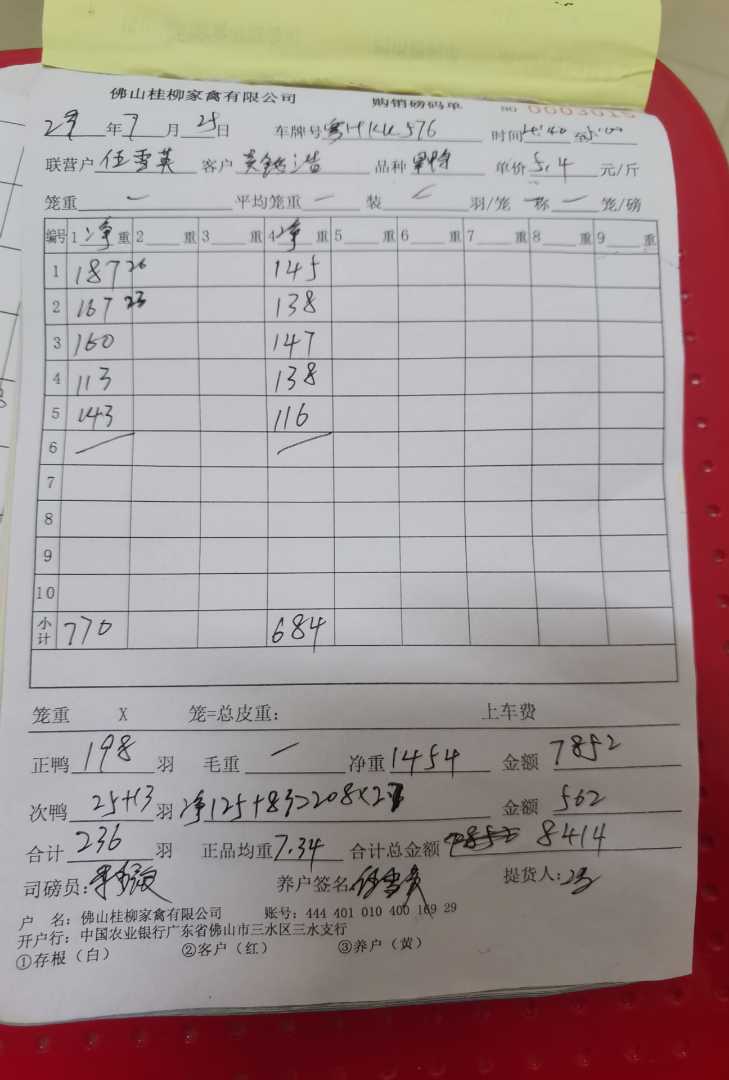 佛山桂柳家禽有限公司 购销磅码单 NO 0003015
23年7月25日 车牌号 576 时间 至5:00
联营户 伍雪英 客户 品种 单价5.4元/斤
笼重 一 平均笼重 一 装 羽/笼 称 一 笼/磅
编号 1 净重 2 重 3 重 4 净重 5 重 6 重 7 重 8 重 9 重
1 187 26 145
2 167 23 138
3 160 147
4 113 138
5 143 116
6
7
8
9
10
小计 770 684
笼重 X 笼=总皮重: 上车费
正鸭 198 羽 毛重 一 净重 1454 金额 7852
次鸭 25+13 羽 净125+83=208×2.7 金额 562
合计 236 羽 正品均重 7.34 合计总金额 8414
司磅员: 养户签名 伍雪英 提货人:
户 名: 佛山桂柳家禽有限公司 账号: 444 401 010 400 169 29
开户行: 中国农业银行广东省佛山市三水区三水支行
①存根(白) ②客户(红) ③养户(黄)